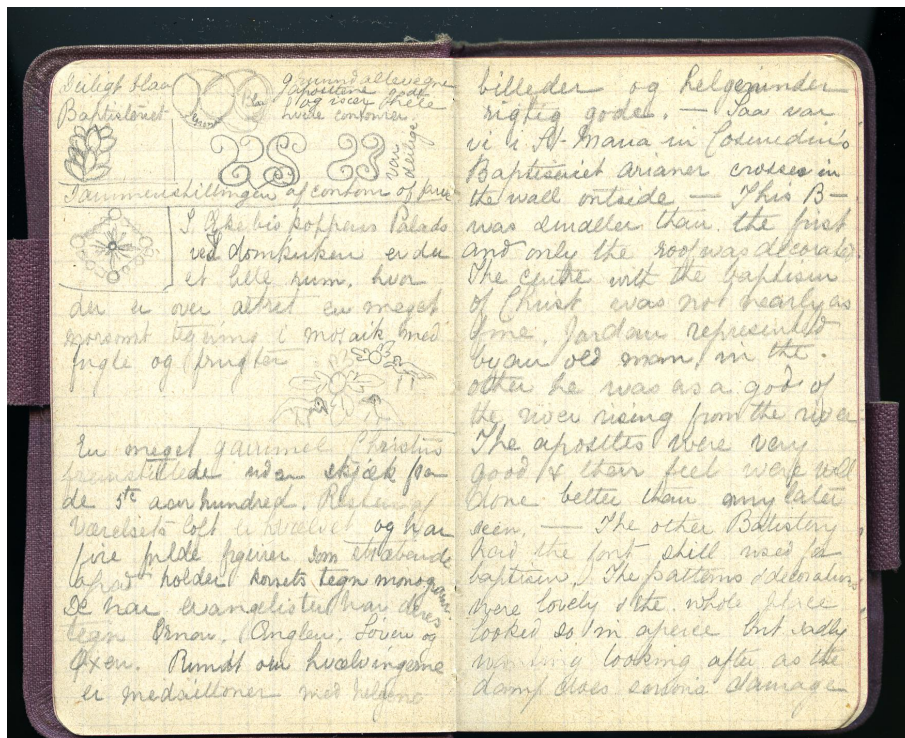 Deiligt blaa
Baptisteriet
grund allevegne
apostlene gode
og iscer hele
hvide contourer.
blaa
var deilige
Sammenstillingen af contour of
I Ærkebiskoppens Palads
ved domkirken er der
et lille rum, hvor
der er over alteret en meget
morsomt tegning i mosaik med
fugle og frugter
En meget gammel Christus
fremstillede uden skjæk fra
de 5te aarhundred. Resten af
Værelsets loft er hvælvet og har
fire fulde figurer som
holder korsets tegn monogram.
De har evangelister har deres
tegn Ørnen, Englen, Løven og
Oxen. Rundt om hvælvingerne
er medaillioner med helgene
billeder og helgeninder
rigtig gode. — Saa var
vi i St. Maria in Cosmedin's
Baptisteriet arianer crosses in
the wall outside — This B—
was smaller than the first
and only the roof was decorated.
The centre with the baptism
of Christ was not nearly as
fine. Jordan represented
by an old man in the
other he was as a god of
the river rising from the river
The apostles were very
good & their feet were well
done better than any later
seen. — The other Batistery
had the font still used for
baptism. The patterns & decorations
were lovely & the whole place
looked so in apeice but sadly
wanting looking after as the
damp does serious damage